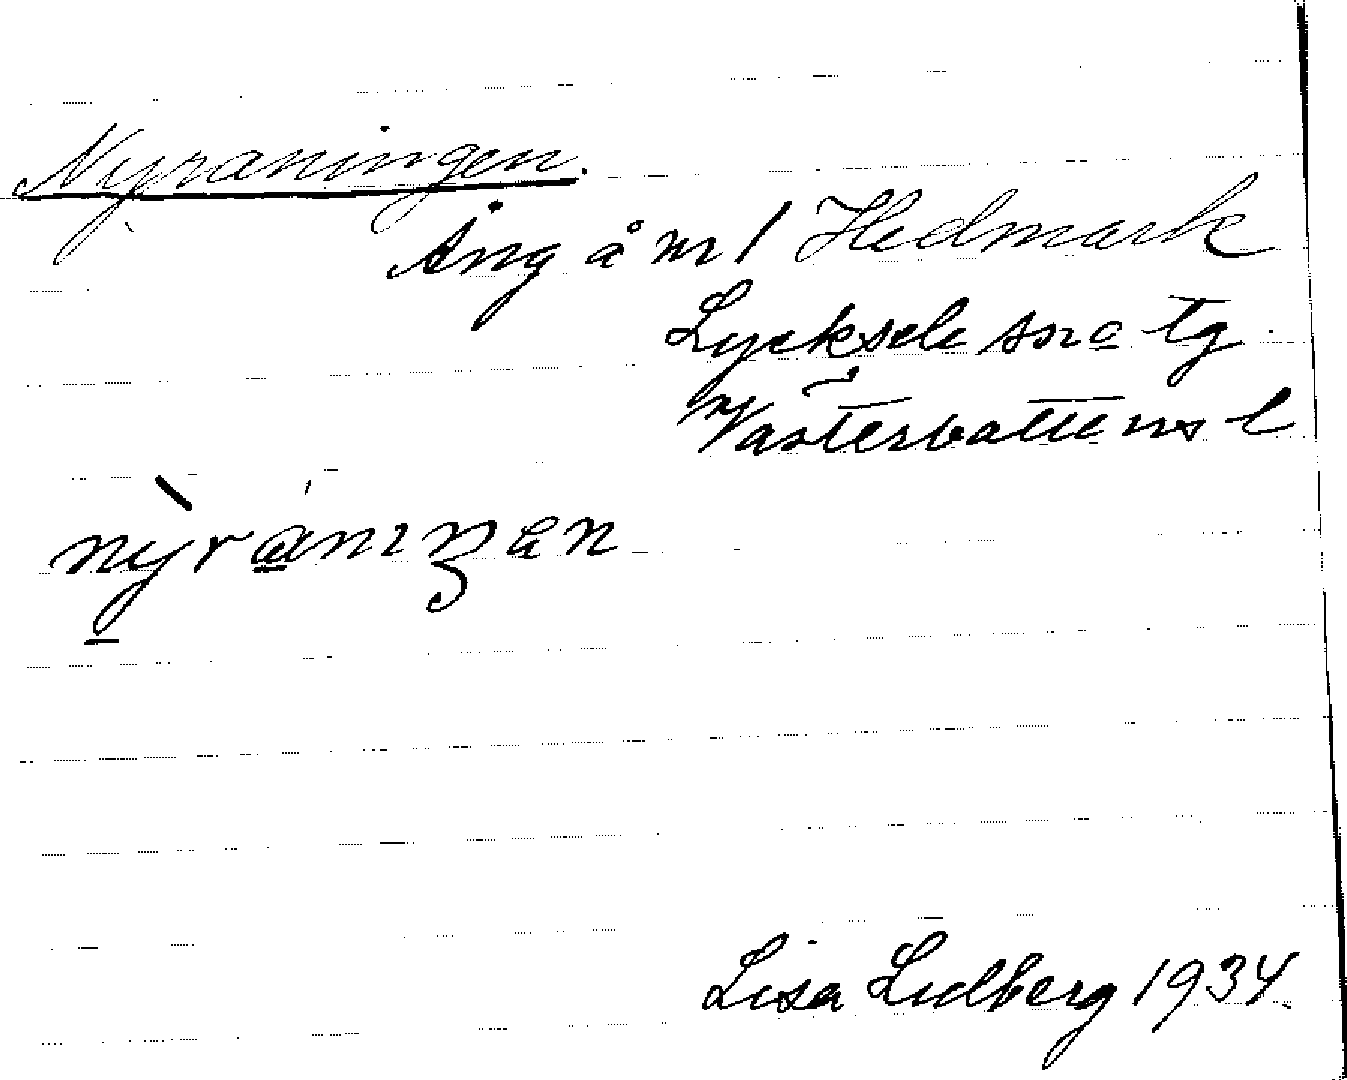 Nyraningen.
Äng å nr 1 Hedmark
Lycksele sn o tg
Västerbottens l
nỳra̱niŋan
Lisa Lidberg 1934